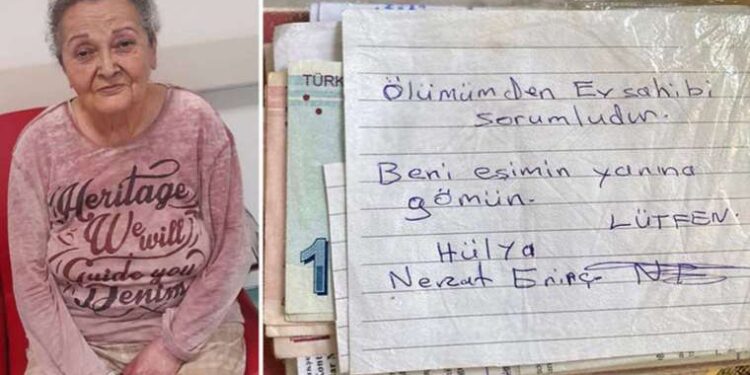 Heritage
We will
Guide you
Denim
TÜRK
1
Ölümümden Ev sahibi
sorumludur.
Beni eşimin yanına
gömün.
LÜTFEN.
Hülya
Nevzat Erinç NE